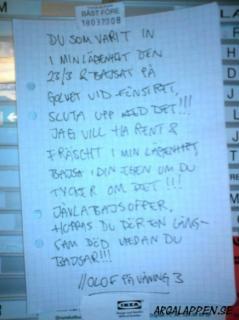 BÄST FÖRE
18037308
DU SOM VARIT IN
I MIN LÄGENHET DEN
23/3 & BAJSAT PÅ
GOLVET VID FÖNSTRET,
SLUTA UPP MED DET!!!
JAG VILL HA RENT &
FRÄSCHT I MIN LÄGENHET
BAJSA I DIN EGEN OM DU
TYCKER OM DET!!!
JÄVLA BAJSOFFER,
HOPPAS DU DÖR EN LÅNG-
SAM DÖD MEDAN DU
BAJSAR!!!
//OLOF PÅ VÅNING 3
IKEA
ARGALAPPEN.SE